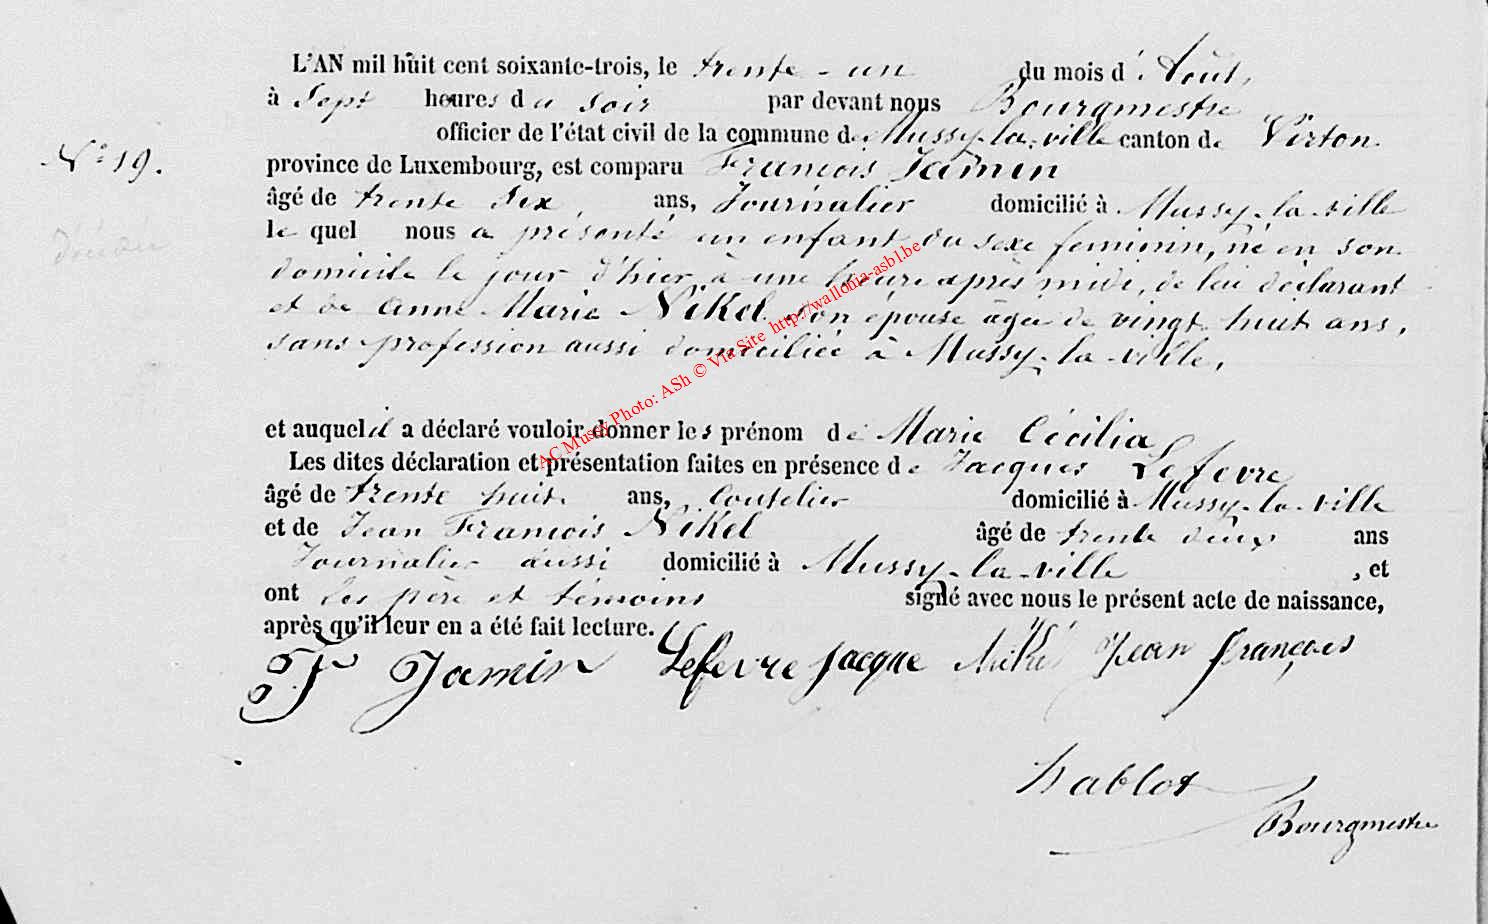 L'AN mil huit cent soixante-trois, le trente-un du mois d'Août,
à Sept heures du soir par devant nous Bourgmestre
officier de l'état civil de la commune de Mussy-la-ville canton de Virton
N° 19.
province de Luxembourg, est comparu François Jamin
âgé de trente six ans, Journalier domicilié à Mussy-la-ville
lequel nous a présenté un enfant du sexe feminin, né en son
domicile le jour d'hier à une heure après midi, de lui déclarant
et de Anne Marie Nikel son épouse âgée de vingt huit ans,
sans profession aussi domiciliée à Mussy-la-ville,
et auquel il a déclaré vouloir donner les prénom de Marie Cécilia
Les dites déclaration et présentation faites en présence de Jacques Lefevre
âgé de trente huit ans, Coutelier domicilié à Mussy-la-ville
et de Jean François Nikel âgé de trente deux ans
Journalier aussi domicilié à Mussy-la-ville, et
ont les père et témoins signé avec nous le présent acte de naissance,
après qu'il leur en a été fait lecture.
F Jamin Lefevre jacque Nikel Jean françois
hablot
Bourgmestre
AC Mussy Photo: ASh © Via Site http://wallonia-asbl.be